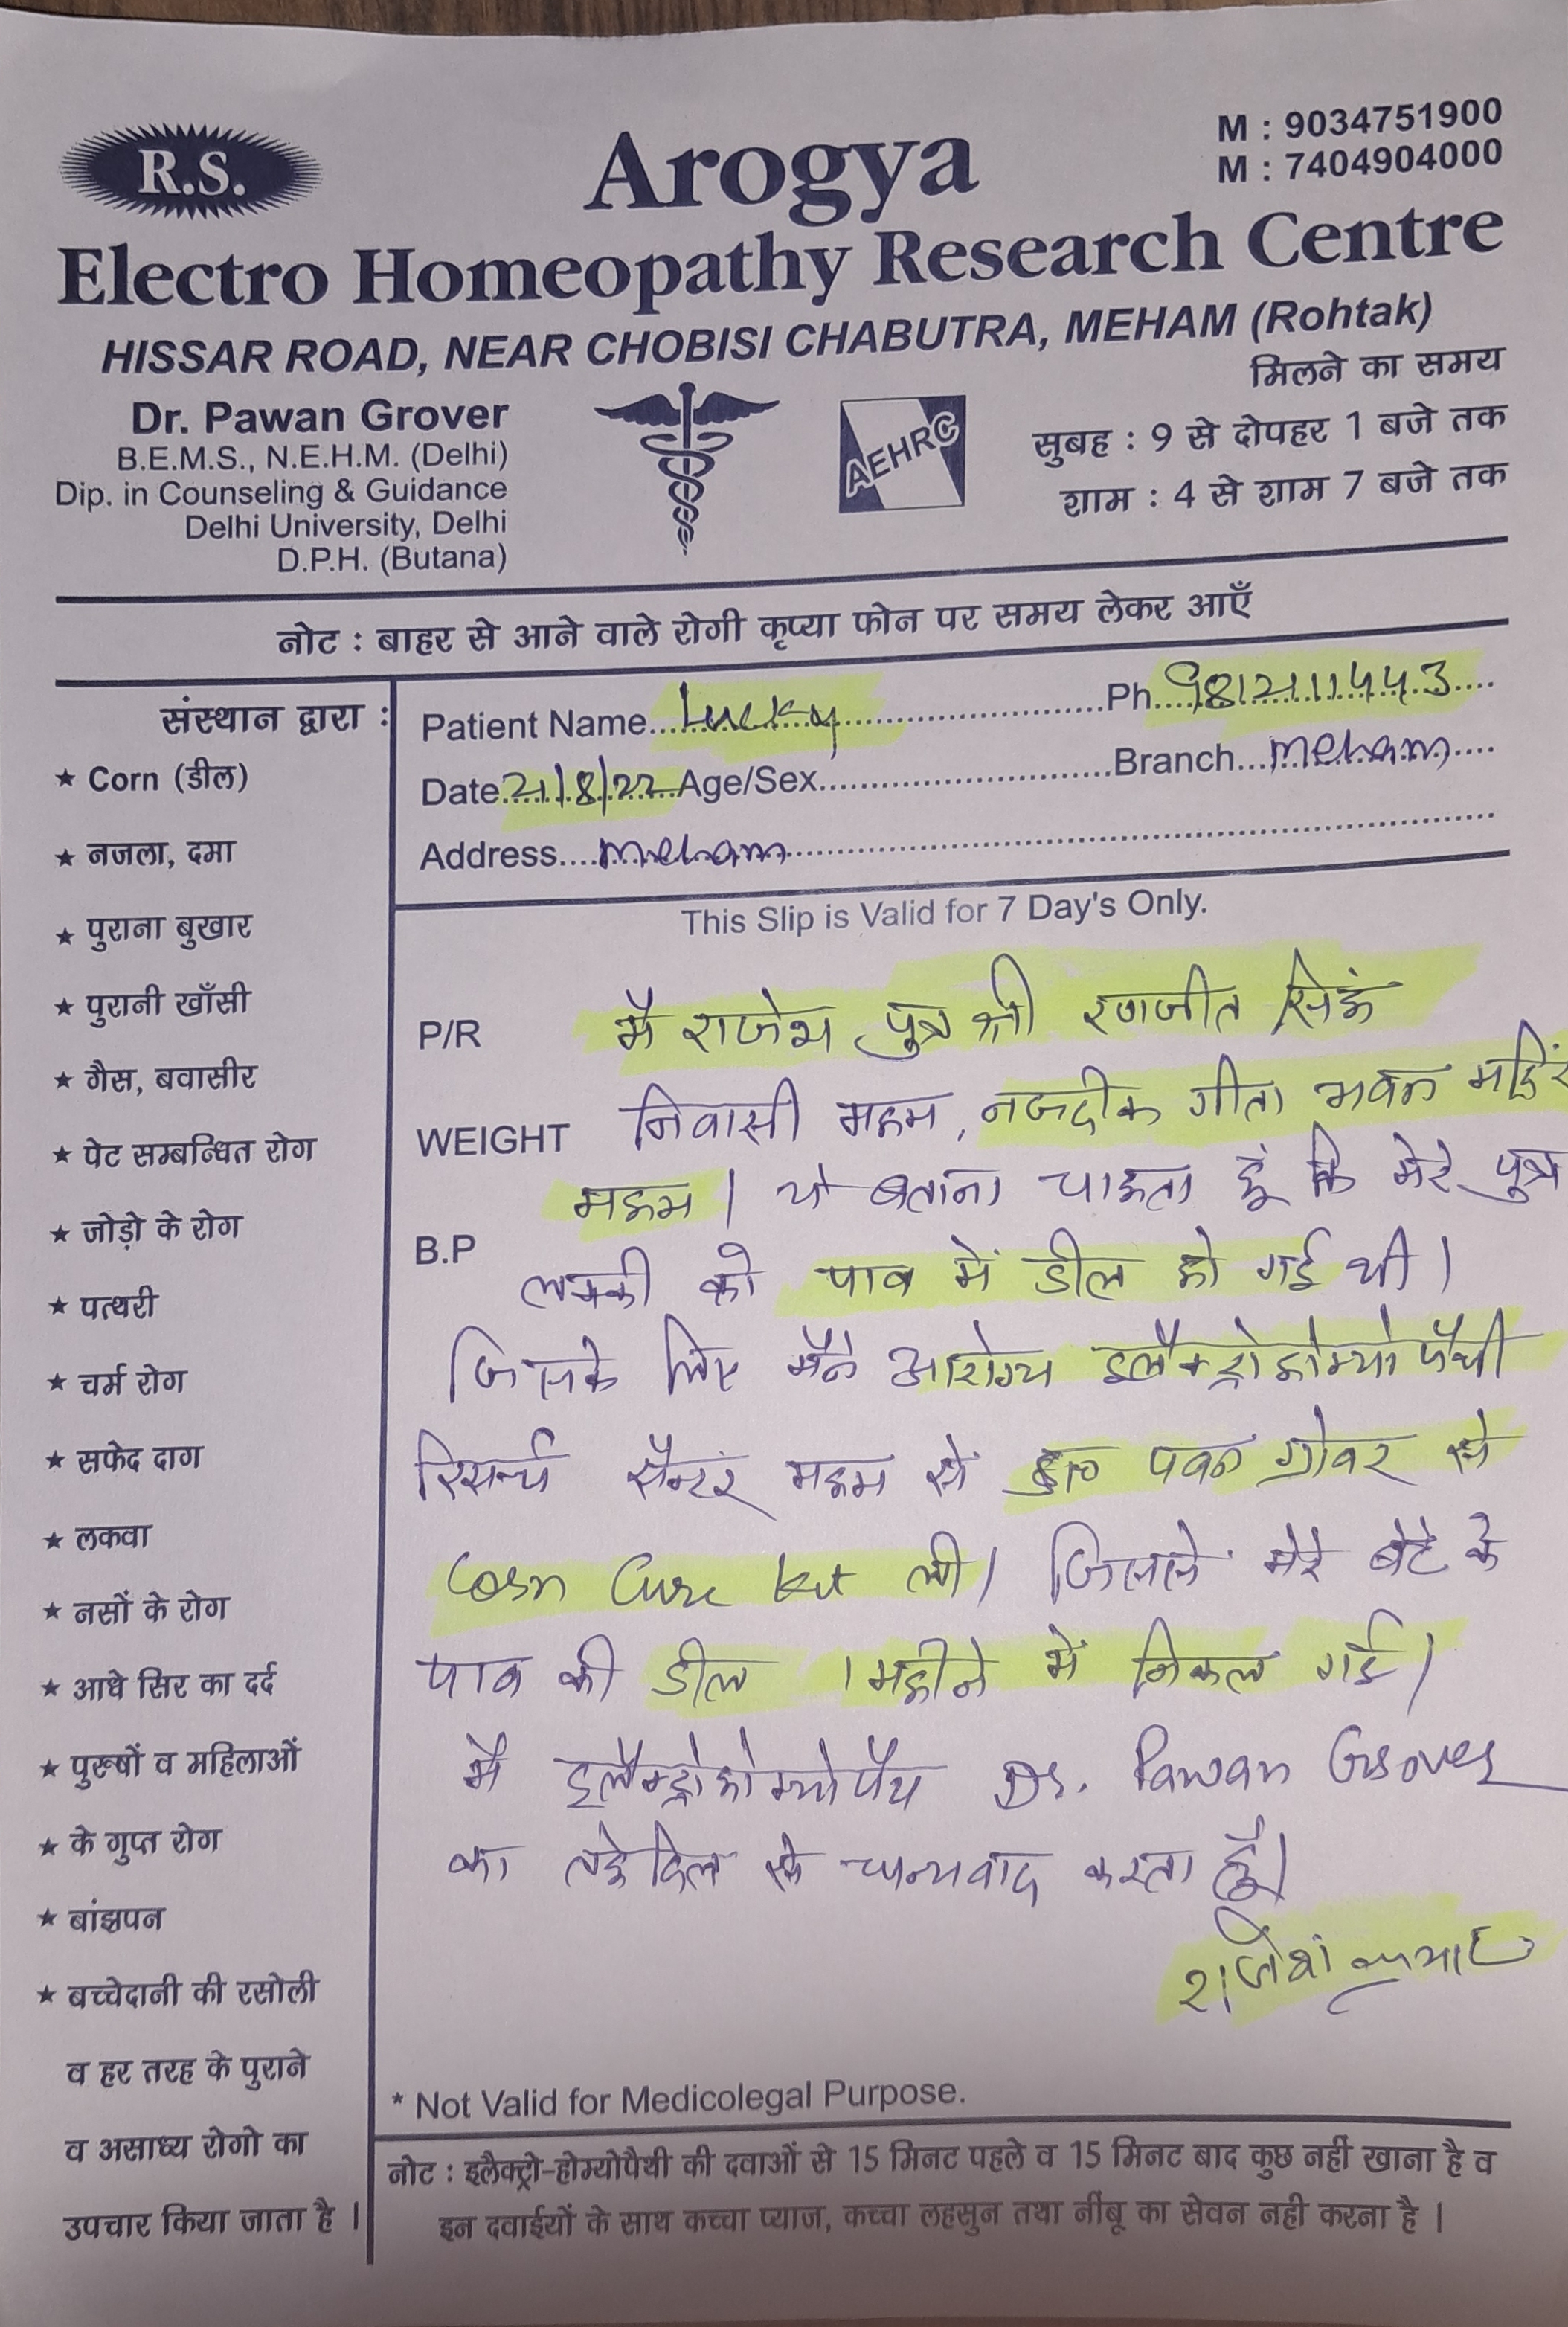 R.S.
Arogya
M : 9034751900
M : 7404904000
Electro Homeopathy Research Centre
HISSAR ROAD, NEAR CHOBISI CHABUTRA, MEHAM (Rohtak)
Dr. Pawan Grover
B.E.M.S., N.E.H.M. (Delhi)
Dip. in Counseling & Guidance
Delhi University, Delhi
D.P.H. (Butana)
AEHRC
मिलने का समय
सुबह : 9 से दोपहर 1 बजे तक
शाम : 4 से शाम 7 बजे तक
नोट : बाहर से आने वाले रोगी कृप्या फोन पर समय लेकर आएँ
संस्थान द्वारा :
★ Corn (डील)
★ नजला, दमा
★ पुराना बुखार
★ पुरानी खाँसी
★ गैस, बवासीर
★ पेट सम्बन्धित रोग
★ जोड़ो के रोग
★ पत्थरी
★ चर्म रोग
★ सफेद दाग
★ लकवा
★ नसों के रोग
★ आधे सिर का दर्द
★ पुरूषों व महिलाओं
★ के गुप्त रोग
★ बांझपन
★ बच्चेदानी की रसोली
व हर तरह के पुराने
व असाध्य रोगो का
उपचार किया जाता है |
Patient Name Lucky Ph. 9812111443
Date 21/8/22 Age/Sex Branch Meham
Address Meham
This Slip is Valid for 7 Day's Only.
P/R मै राजेश पुत्र श्री रणजीत सिहं
WEIGHT निवासी महम, नजदीक गीता भवन मदिंर
महम। यो बताना चाहता हूं कि मेरे पुत्र
B.P लक्की को पाव में डील हो गई थी।
जिसके लिए मैने आरोग्य इलैक्ट्रोहोम्योपैथी
रिसर्च सैन्टर महम से डा० पवन ग्रोवर से
Corn Cure kit ली। जिससे मेरे बेटे के
पाव की डील 1 महीने में निकल गई।
मै इलैक्ट्रोहोम्योपैथ Dr. Pawan Grover
का तहेदिल से धन्यवाद करता हूँ।
राजेश कुमार
* Not Valid for Medicolegal Purpose.
नोट : इलैक्ट्रो-होम्योपैथी की दवाओं से 15 मिनट पहले व 15 मिनट बाद कुछ नहीं खाना है व
इन दवाईयों के साथ कच्चा प्याज, कच्चा लहसुन तथा नींबू का सेवन नही करना है |